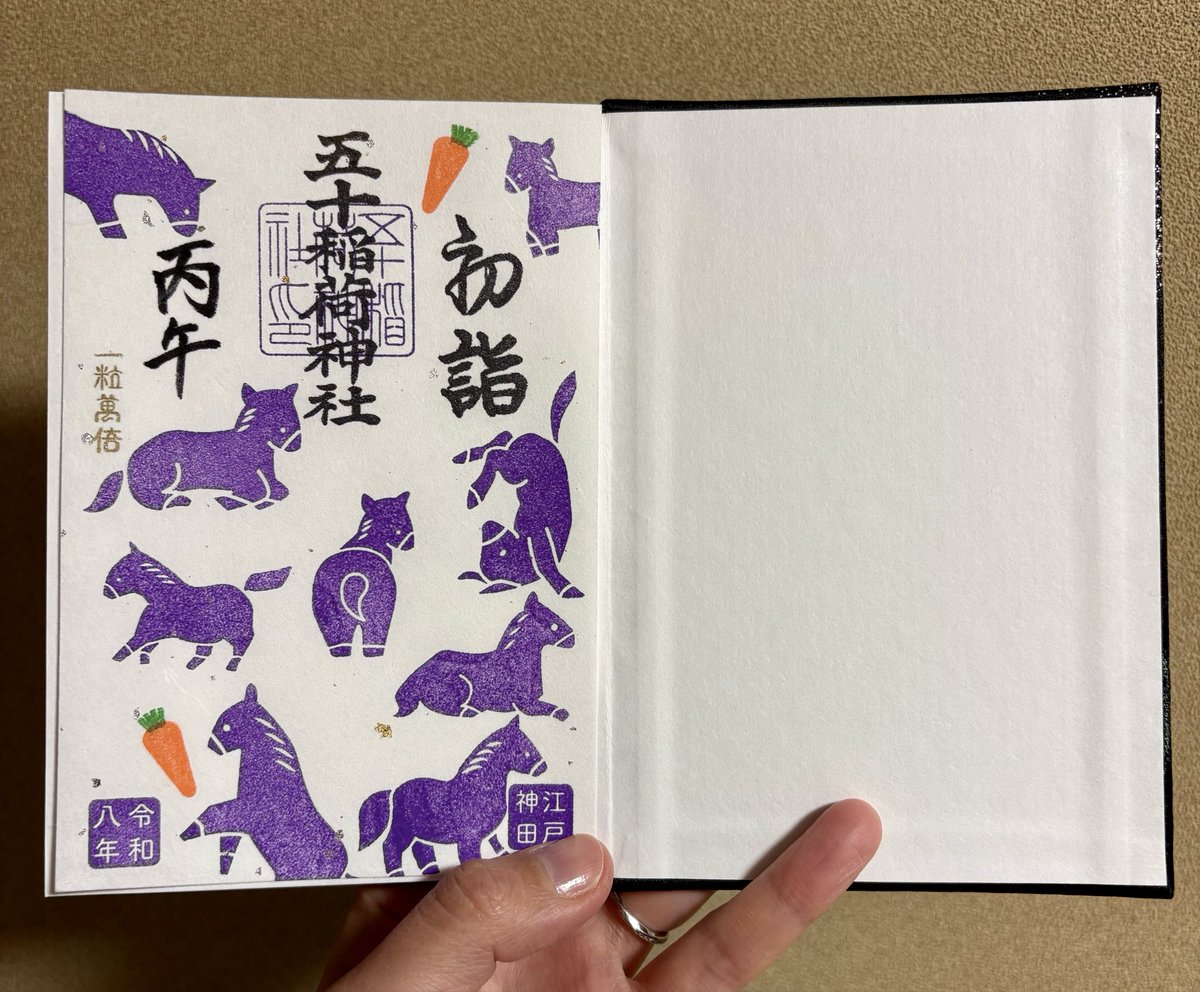 初詣
五十稲荷神社
丙午
一粒萬倍
江戸
神田
令和
八年